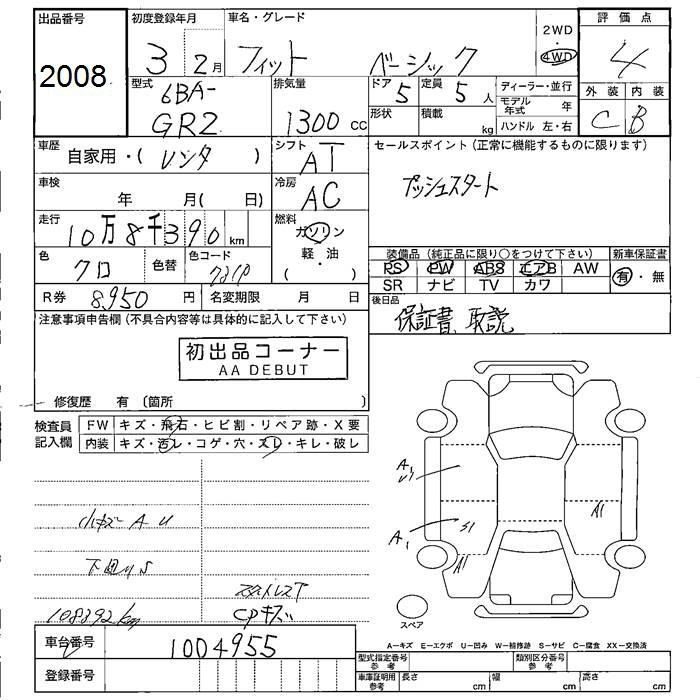 出品番号
2008
初度登録年月
3 2月
車名・グレード
フィット ベーシック
2WD
・
4WD
評価点
4
外装 内装
C B
型式
6BA-
GR2
排気量
1300 cc
ドア
5
定員
5 人
形状
積載
kg
ディーラー・並行
モデル年式 年
ハンドル 左・右
車歴
自家用・( レンタ )
シフト
AT
セールスポイント (正常に機能するものに限ります)
プッシュスタート
車検
年 月( 日)
冷房
AC
走行
10万8千390km
燃料
ガソリン
軽・油
( )
色
クロ
色替
色コード
R券 8,950 円
名変期限 月 日
装備品 (純正品に限り○をつけて下さい)
PS PW ABS エアB AW
SR ナビ TV カワ
新車保証書
有・無
後日品
保証書 取説
注意事項申告欄 (不具合内容等は具体的に記入して下さい)
初出品コーナー
AA DEBUT
修復歴 有 (箇所 )
検査員
記入欄
FW キズ・飛石・ヒビ割・リペア跡・X要
内装 キズ・汚レ・コゲ・穴・スレ・キレ・破レ
小キズ A U
下回り S
108392km
CPキズ
A1
S1
A1
A1
スペア
車台番号
1004955
登録番号
A－キズ E－エクボ U－凹み W－補修跡 S－サビ C－腐食 XX－交換済
型式指定番号
参考
類別区分番号
参考
車庫証明用
参考
長さ cm
幅 cm
高さ cm